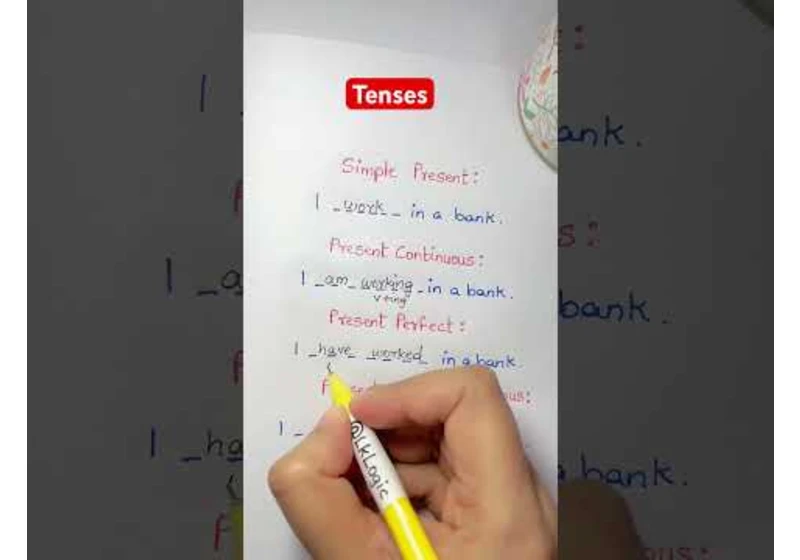 Tenses
Simple Present:
I _work_ in a bank.
Present Continuous:
I _am_ _working_ in a bank.
v+ing
Present Perfect:
I _have_ _worked_ in a bank.
@LkLogic